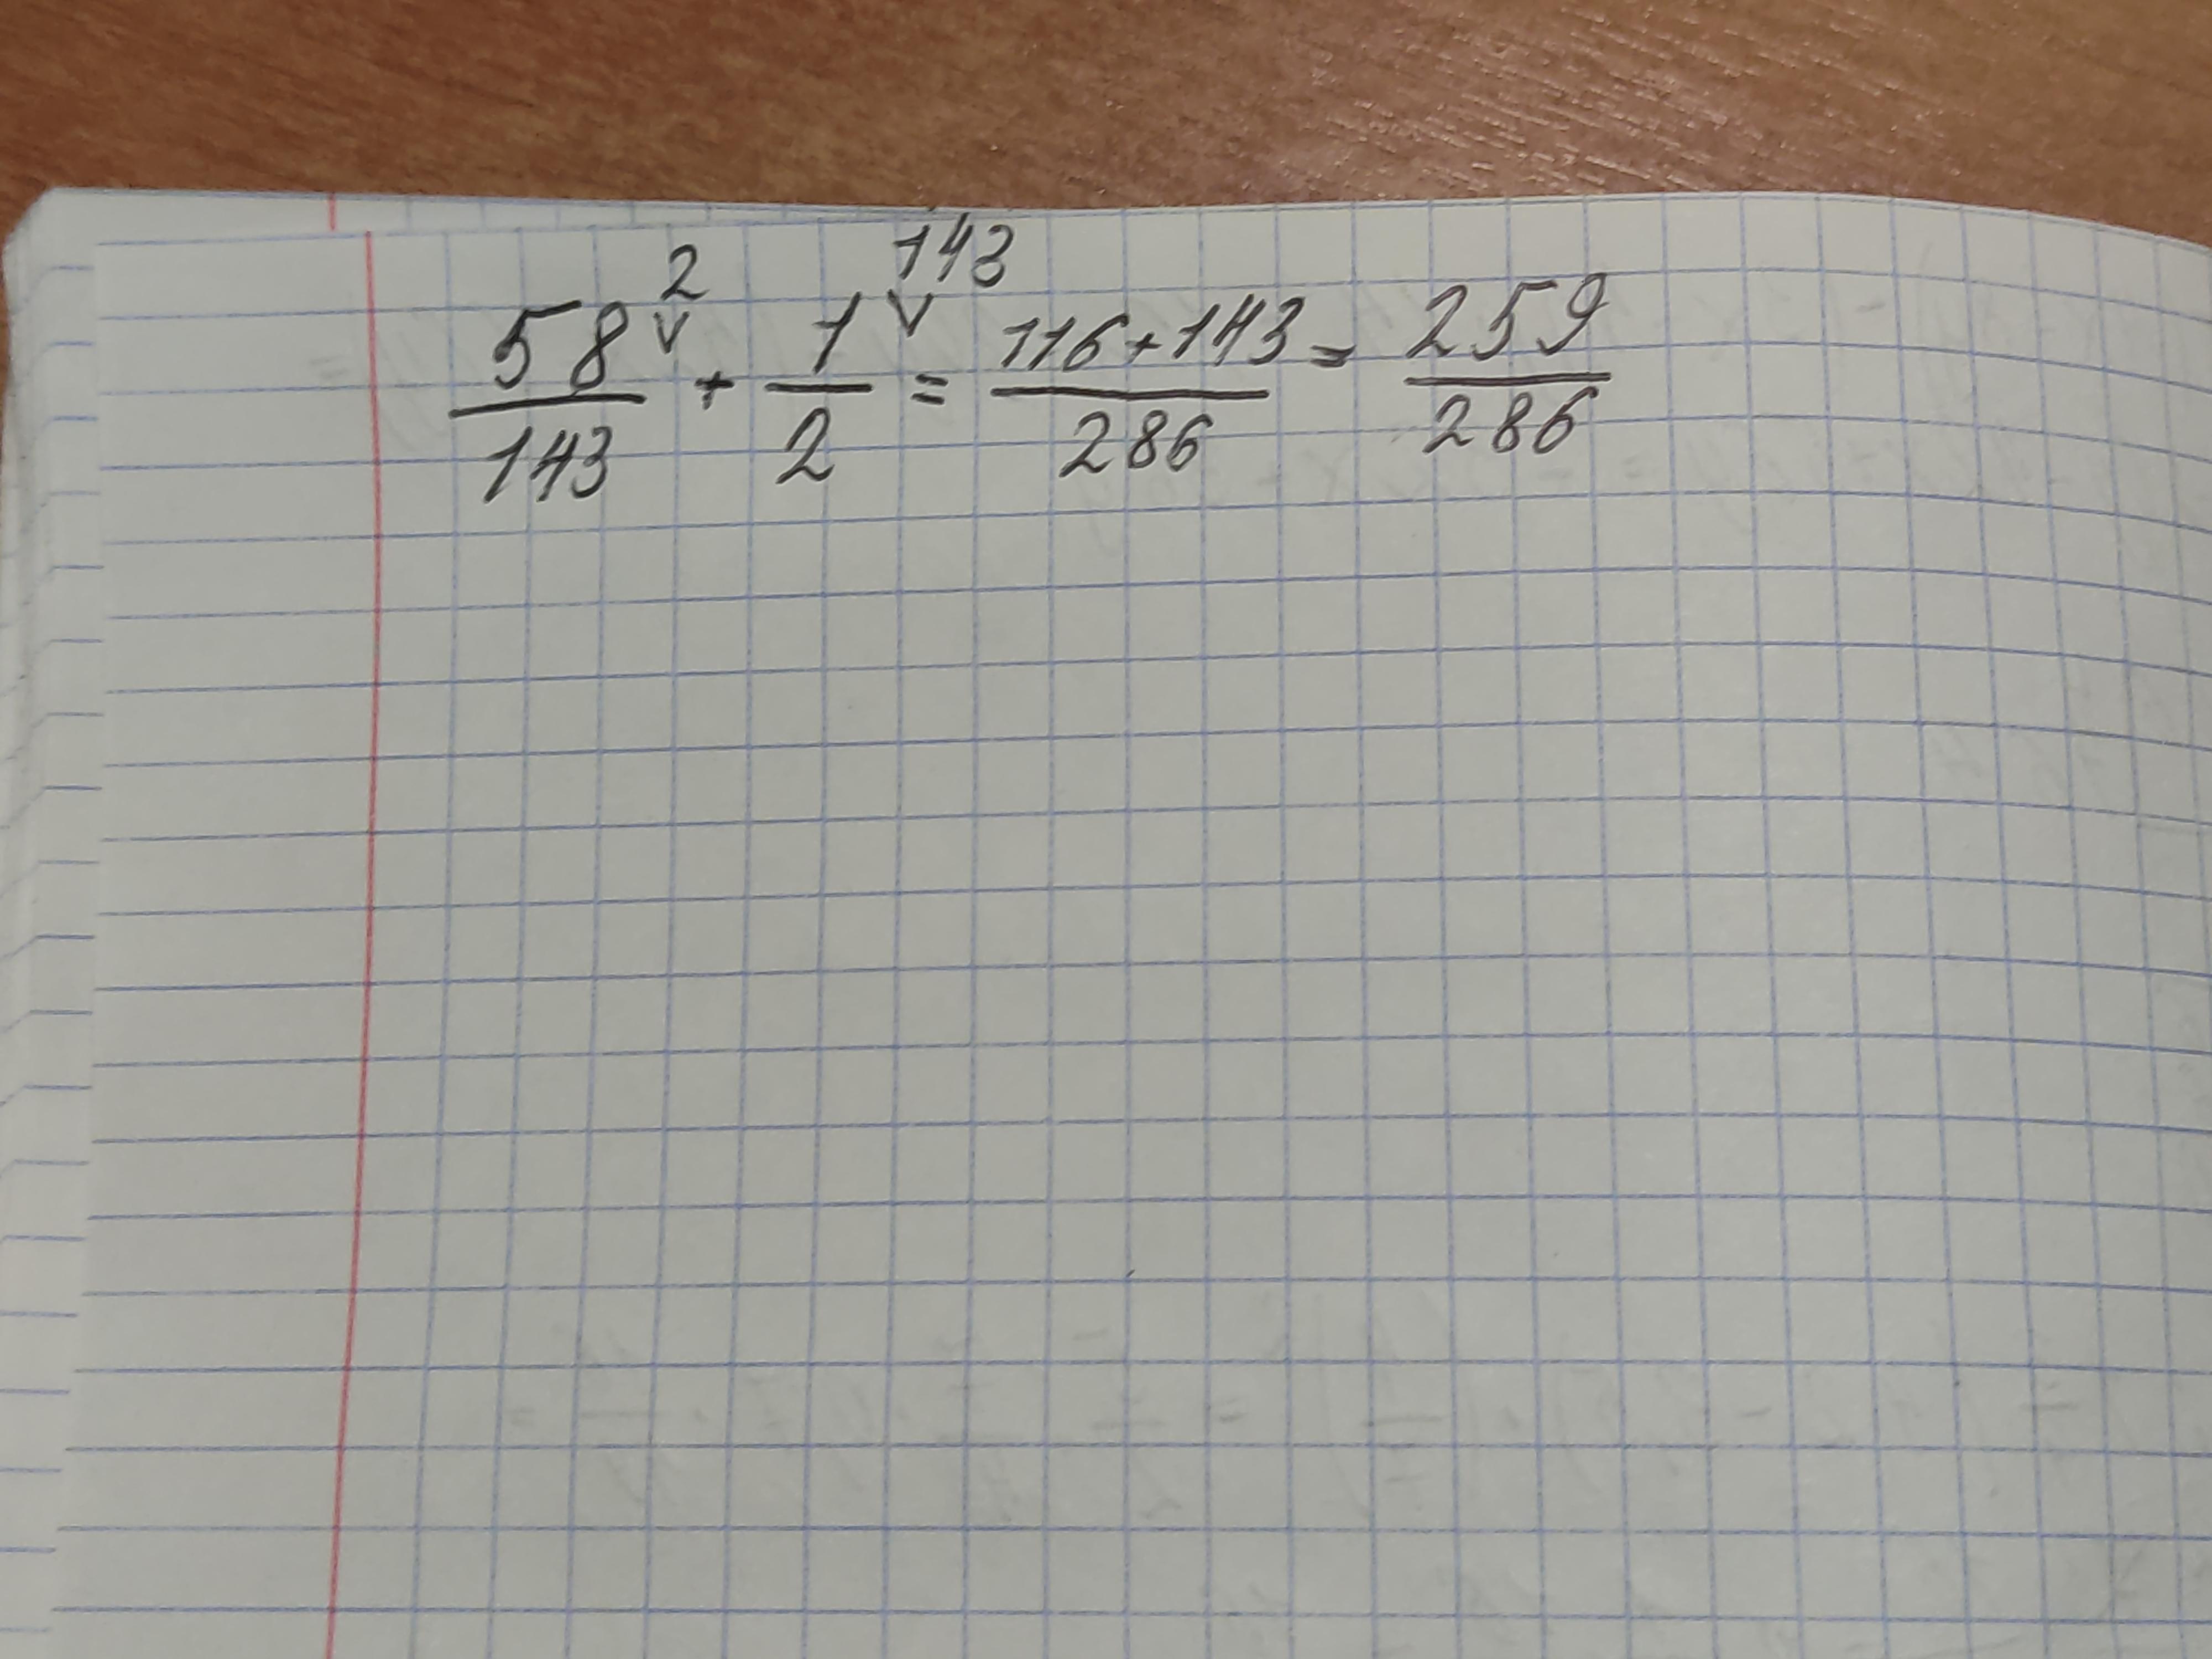 58/143 ˅2 + 1/2 ˅143 = 116+143/286 = 259/286